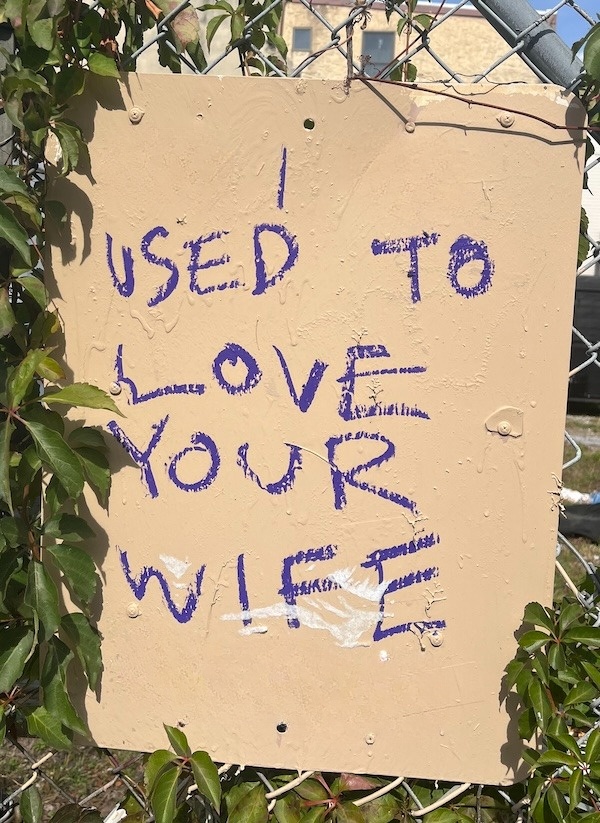 I
USED TO
LOVE
YOUR
WIFE